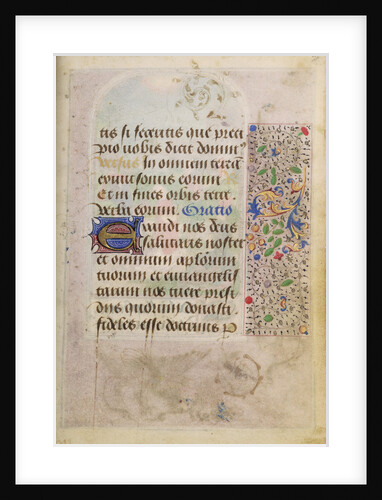 tis si feceritis que preci
pio vobis dicit dominꝰ
versus In omnem terrã
exivit sonus eorum
Et in fines orbis terre
verba eorum. Oratio
Exaudi nos deus
salutaris noster
et omnium aplorum
tuorum et euangelis
tarum nos tuere presi
diis quorum donasti
fideles esse doctrinis p